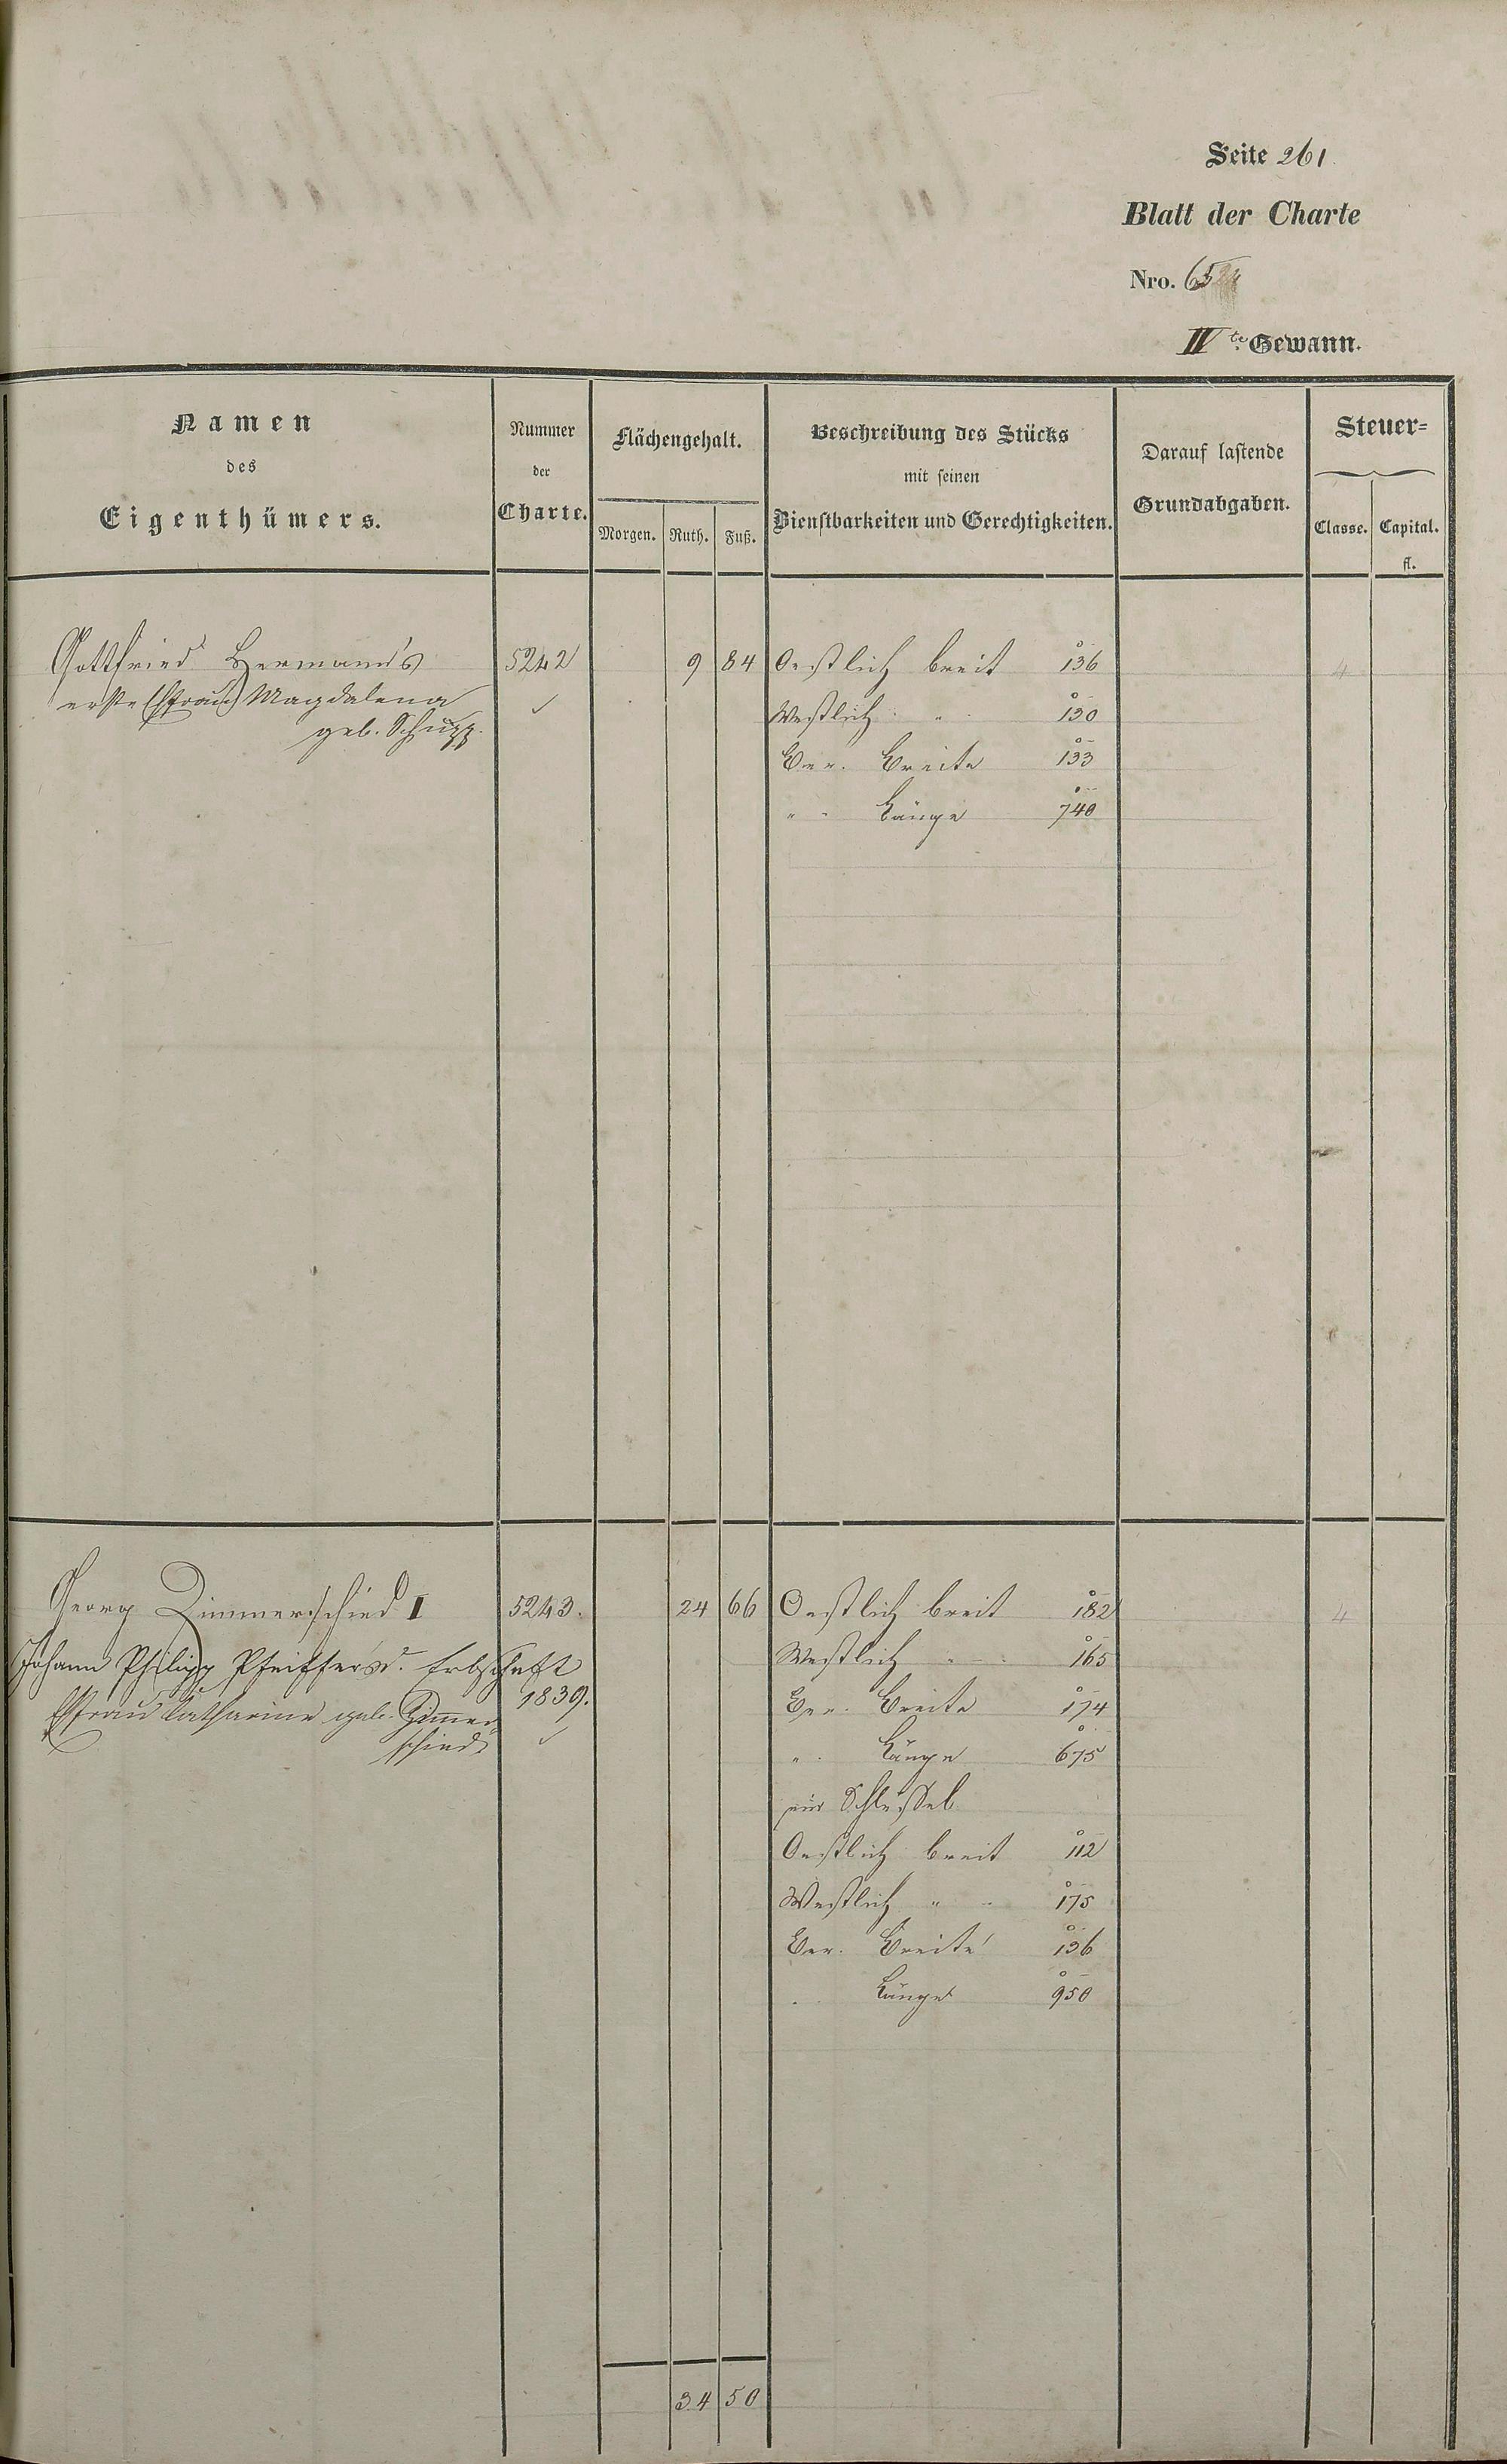 Seite 261
Blatt der Charte
Nro. 65
IV te Gewann.
Namen
des
Eigenthümers.
Nummer
der
Charte.
Flächengehalt.
Morgen. Ruth. Fuß.
Beschreibung des Stücks
mit seinen
Dienstbarkeiten und Gerechtigkeiten.
Darauf lastende
Grundabgaben.
Steuer=
Classe. Capital.
fl.
Gottfried Hermann's 5242 9 84 Oestlich breit 136 4
erste Ehefrau Magdalena Westlich " 130
geb. Schupp.
Ver. Breite 133
" " Länge 740
Georg Zimmerschied I 5243. 24 66 Oestlich breit 182 4
Johann Philipp Pfeiffer's d. Erbschaft Westlich " 165
Ehefrau Catharine geb. Zimmer 1839. Ver. Breite 174
schied. " Länge 675
ein Schlüssel
Oestlich breit 112
Westlich " 175
Ver. Breite 136
" Länge 950
34 50